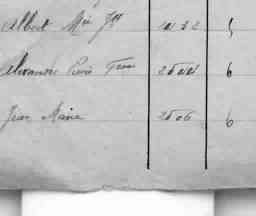 Albert Mie Jh 5
Alexandre Pierre Fran 6
Jean Marie 2506 6